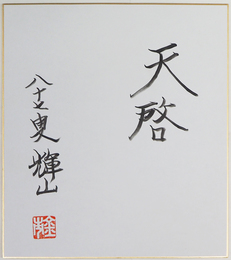 天啓
八十七叟 輝山